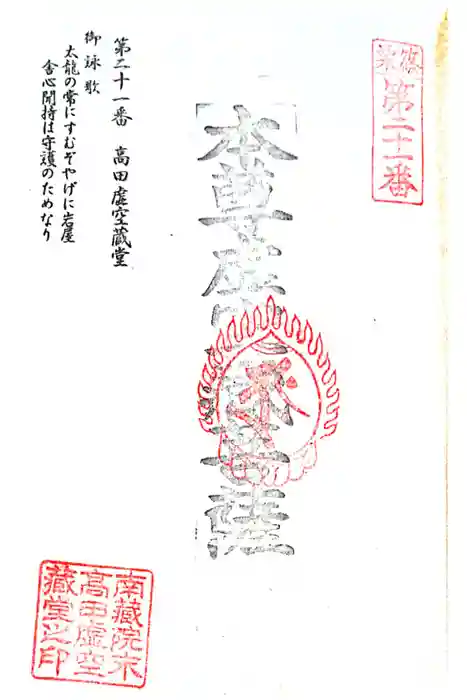 篠栗
第二十一番
本尊虚空蔵菩薩
第二十一番　高田虚空蔵堂
御詠歌
太龍の常にすむぞやげに岩屋
舎心聞持は守護のためなり
南蔵院末
高田虚空
蔵堂之印